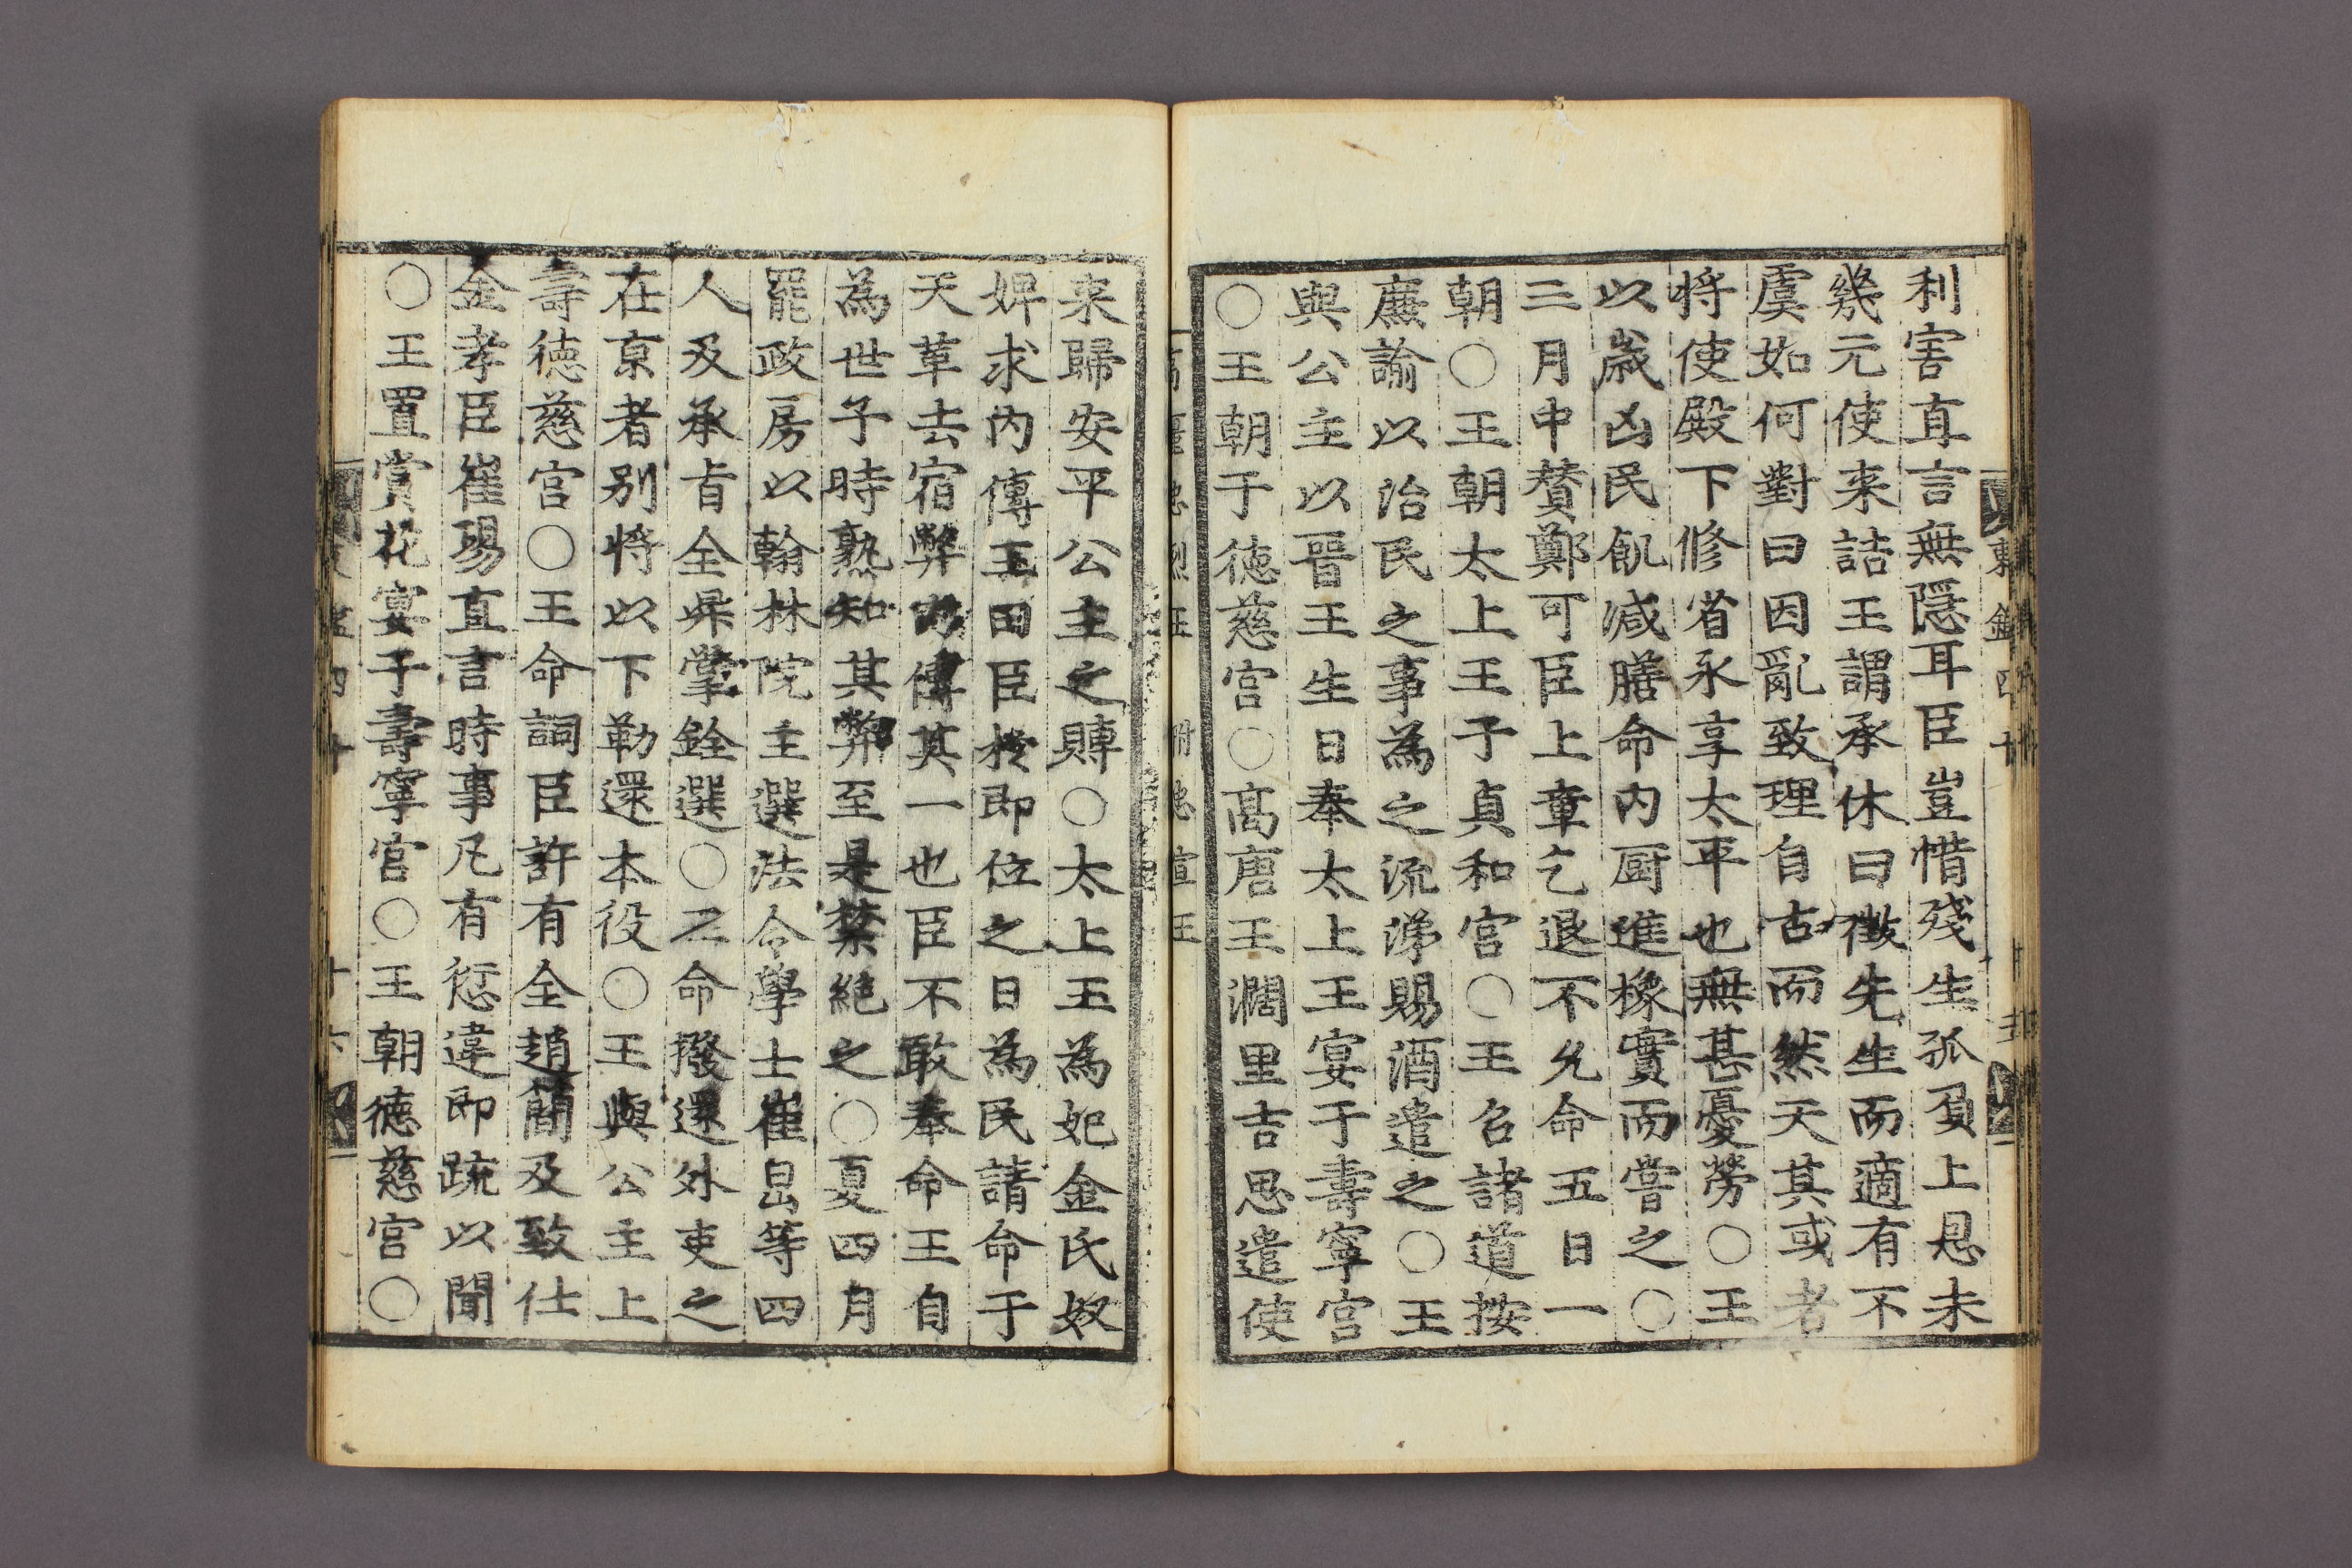 利害直言無隱耳臣豈惜殘生孤負上恩未
幾元使来詰王謂承休曰徵先生而適有不
虞如何對曰因亂致理自古而然天其或者
將使殿下修省永享太平也無甚憂勞○王
以歲凶民飢减膳命內厨進橡實而嘗之○
三月中贊鄭可臣上章乞退不允命五日一
朝○王朝太上王于貞和宮○王召諸道按
廉諭以治民之事為之流涕賜酒遣之○王
與公主以晉王生日奉太上王宴于壽寧宮
○王朝于德慈宮○高唐王濶里吉思遣使
来歸安平公主之賻○太上王為妃金氏奴
婢求內傳王曰臣於即位之日為民請命于
天革去宿弊內傳其一也臣不敢奉命王自
為世子時熟知其弊至是禁絕之○夏四月
罷政房以翰林院主選法令學士崔昷等四
人及承旨全昇掌銓選○又命撥還外吏之
在京者别將以下勒還本役○王與公主上
壽德慈宮○王命詞臣許有全趙簡及致仕
金孝臣崔昜直言時事凡有愆違即疏以聞
○王置賞花宴于壽寧宮○王朝德慈宮○